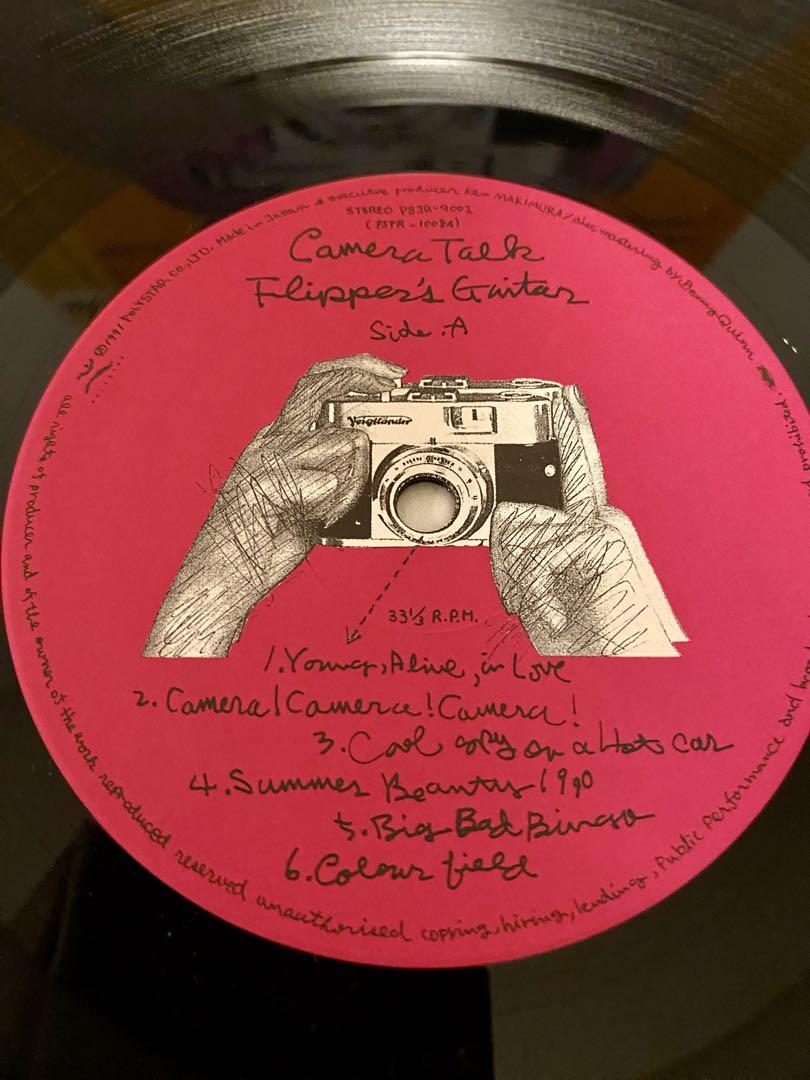 ℗1991 POLYSTAR CO., LTD. Made in Japan executive producer Ken MAKIMURA / disc mastering by Benny Quinn
STEREO PSJR-9002
(PSTR-1008A)
Camera Talk
Flipper's Guitar
Side.A
Voigtländer
33⅓ R.P.M.
1.Young, Alive, in Love
2.Camera!Camera!Camera!
3.Cool spy on a Hot car
4.Summer Beauty 1990
5.Big Bad Bingo
6.Colour field
all rights of producer and of the owner of the work reproduced reserved unauthorised copying, hiring, lending, Public performance and prohibited.